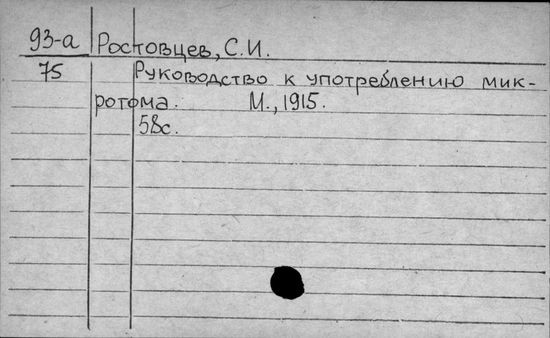 93-а Ростовцев, С.И.
75 Руководство к употреблению мик-
ротома. М., 1915.
58с.